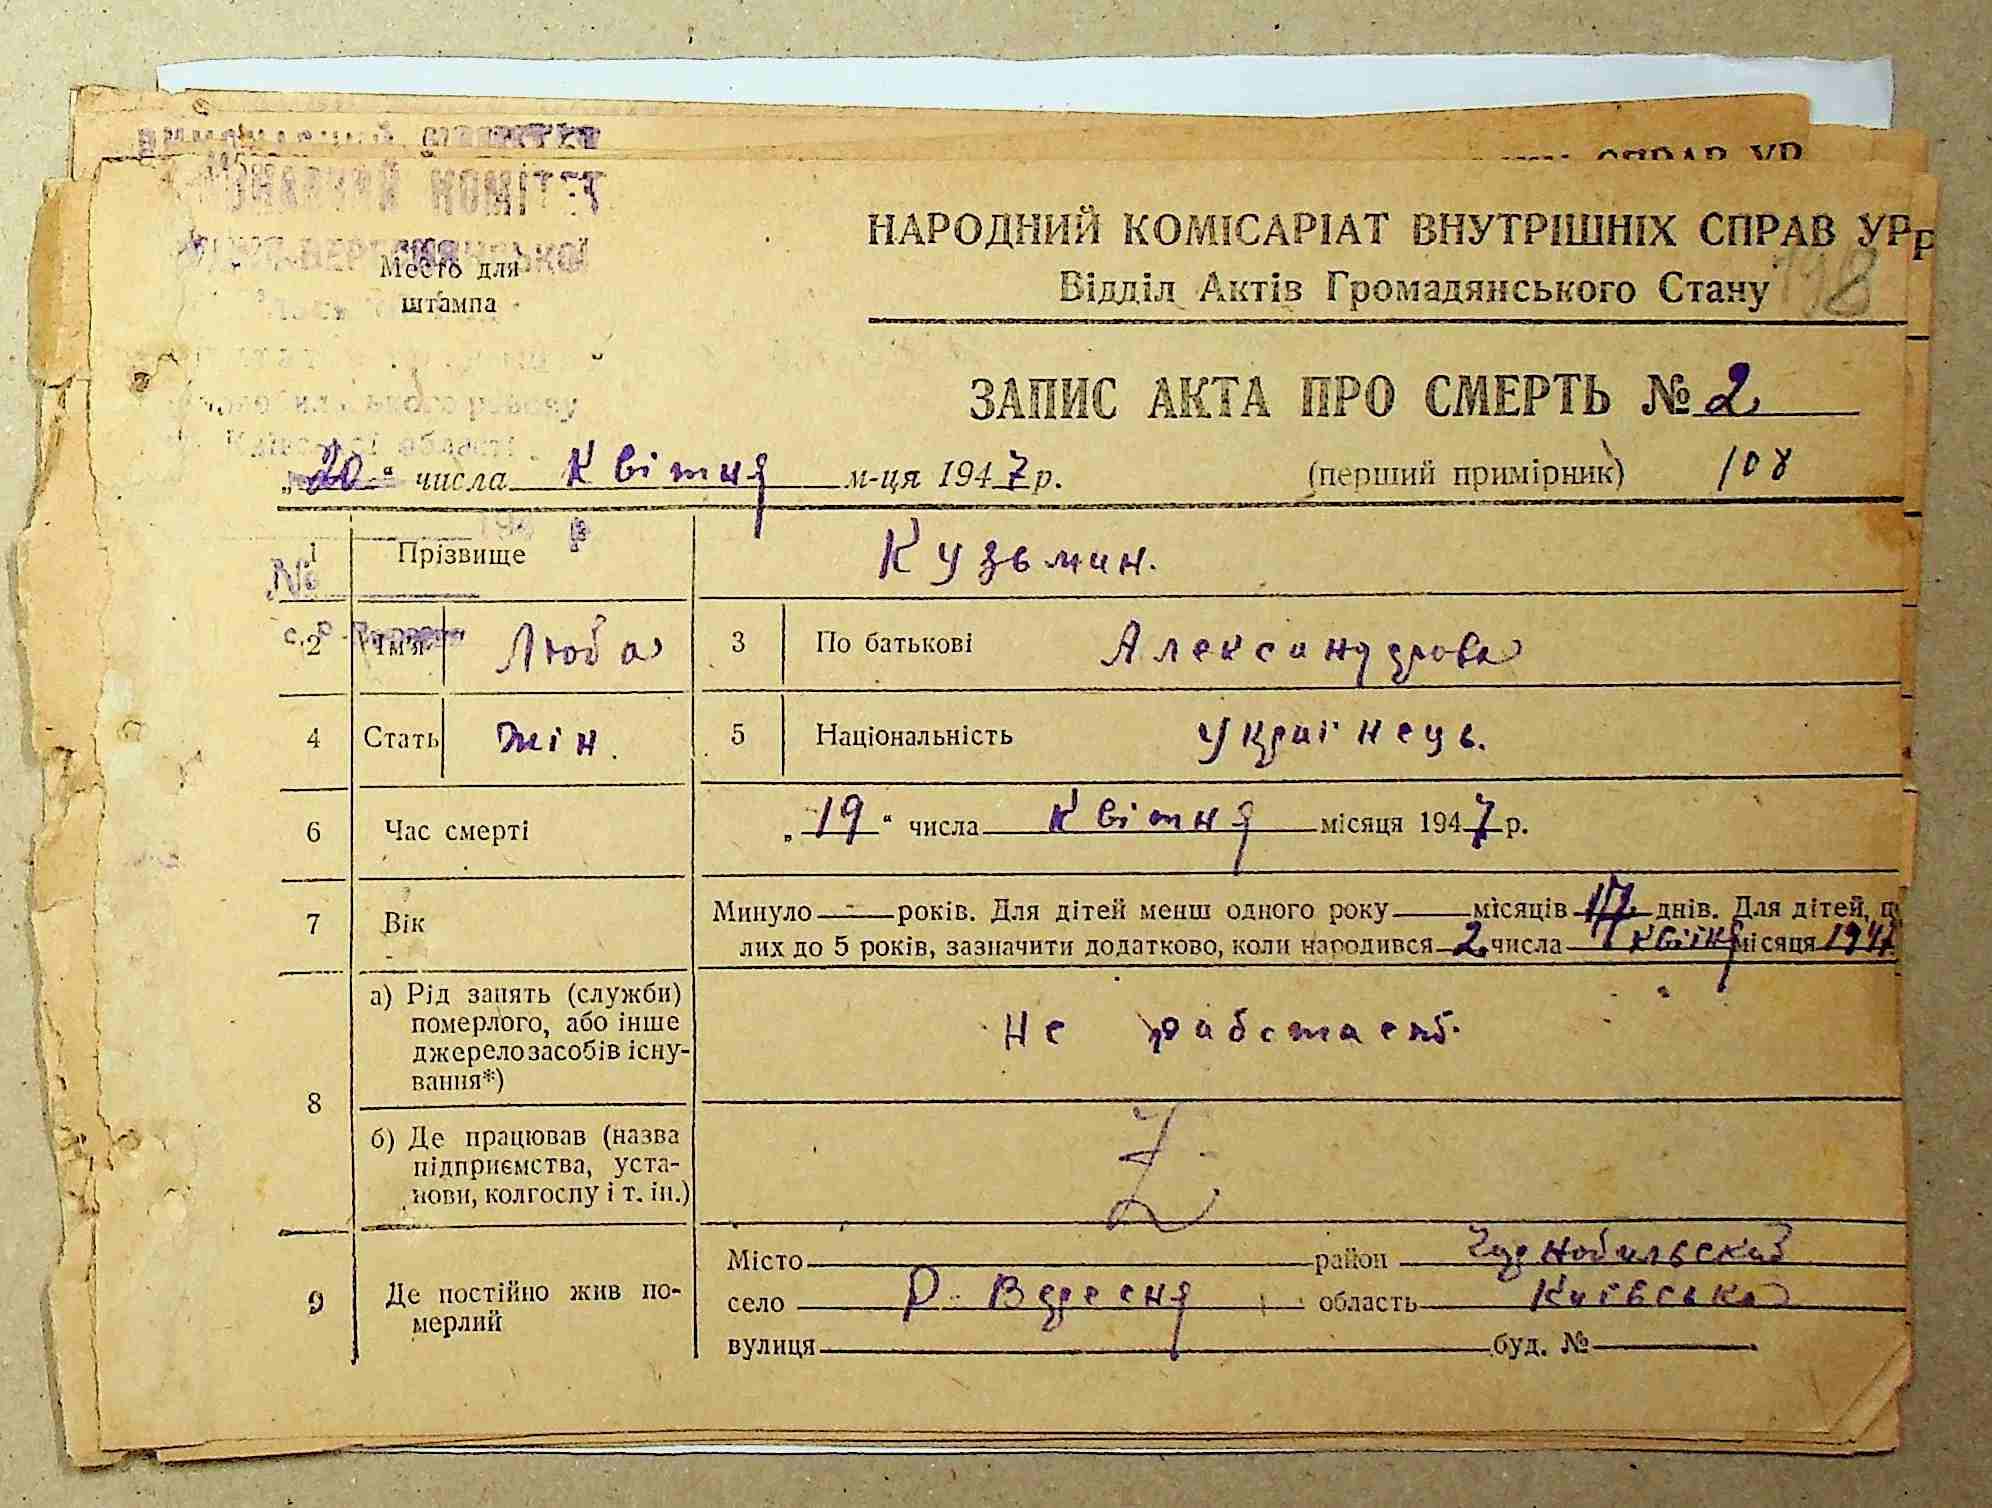 КОМІТЕТ
НАРОДНИЙ КОМІСАРІАТ ВНУТРІШНІХ СПРАВ УРР
Место для
штампа
Відділ Актів Громадянського Стану
118
ЗАПИС АКТА ПРО СМЕРТЬ № 2
„20“ числа Квітня м-ця 1947 р. (перший примірник) 108
1 Прізвище Кузьмин.
№
2 Ім'я Люба 3 По батькові Александрова
4 Стать жін. 5 Національність Українець.
6 Час смерті „19“ числа Квітня місяця 1947 р.
7 Вік Минуло — років. Для дітей менш одного року місяців 17 днів. Для дітей,
лих до 5 років, зазначити додатково, коли народився 2 числа квітня місяця 1947
8 а) Рід занять (служби)
померлого, або інше
джерело засобів існу-
вання*) Не работаеть.
б) Де працював (назва
підприємства, уста-
нови, колгоспу і т. ін.) Z
9 Де постійно жив по-
мерлий
Місто район Чернобильский
село Р-Вересня область Київська
вулиця буд. №